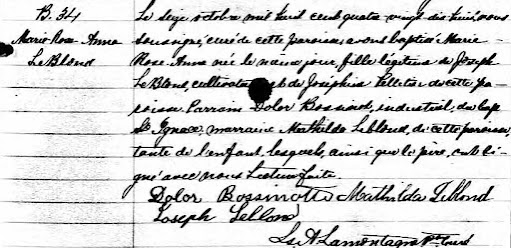 B. 34
Marie-Rose-Anna
LeBlond
Le seize octobre mil huit cent quatre vingt dix huit, nous
soussigné, curé de cette paroisse, avons baptisé Marie
Rose Anna née le même jour, fille légitime de Joseph
LeBlond, cultivateur et de Joséphine Pelletier de cette pa-
roisse Parrain Dolor Bossinot, industriel, du Cap
St Ignace, marraine Mathilda Leblond, de cette paroisse,
tante de l'enfant, lesquels, ainsi que le père, ont si-
gné avec nous Lecture faite
Dolor Bossinotte Mathilda Leblond
Joseph Leblond
Ls A Lamontagne Ptre Curé